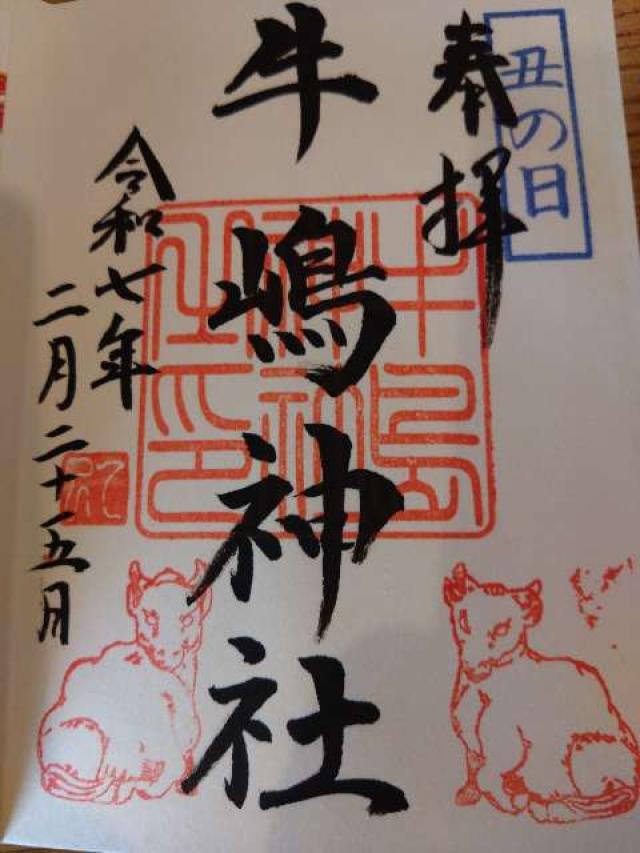 丑の日
奉拝
牛嶋神社
令和七年
二月二十五月
牛嶋神社印